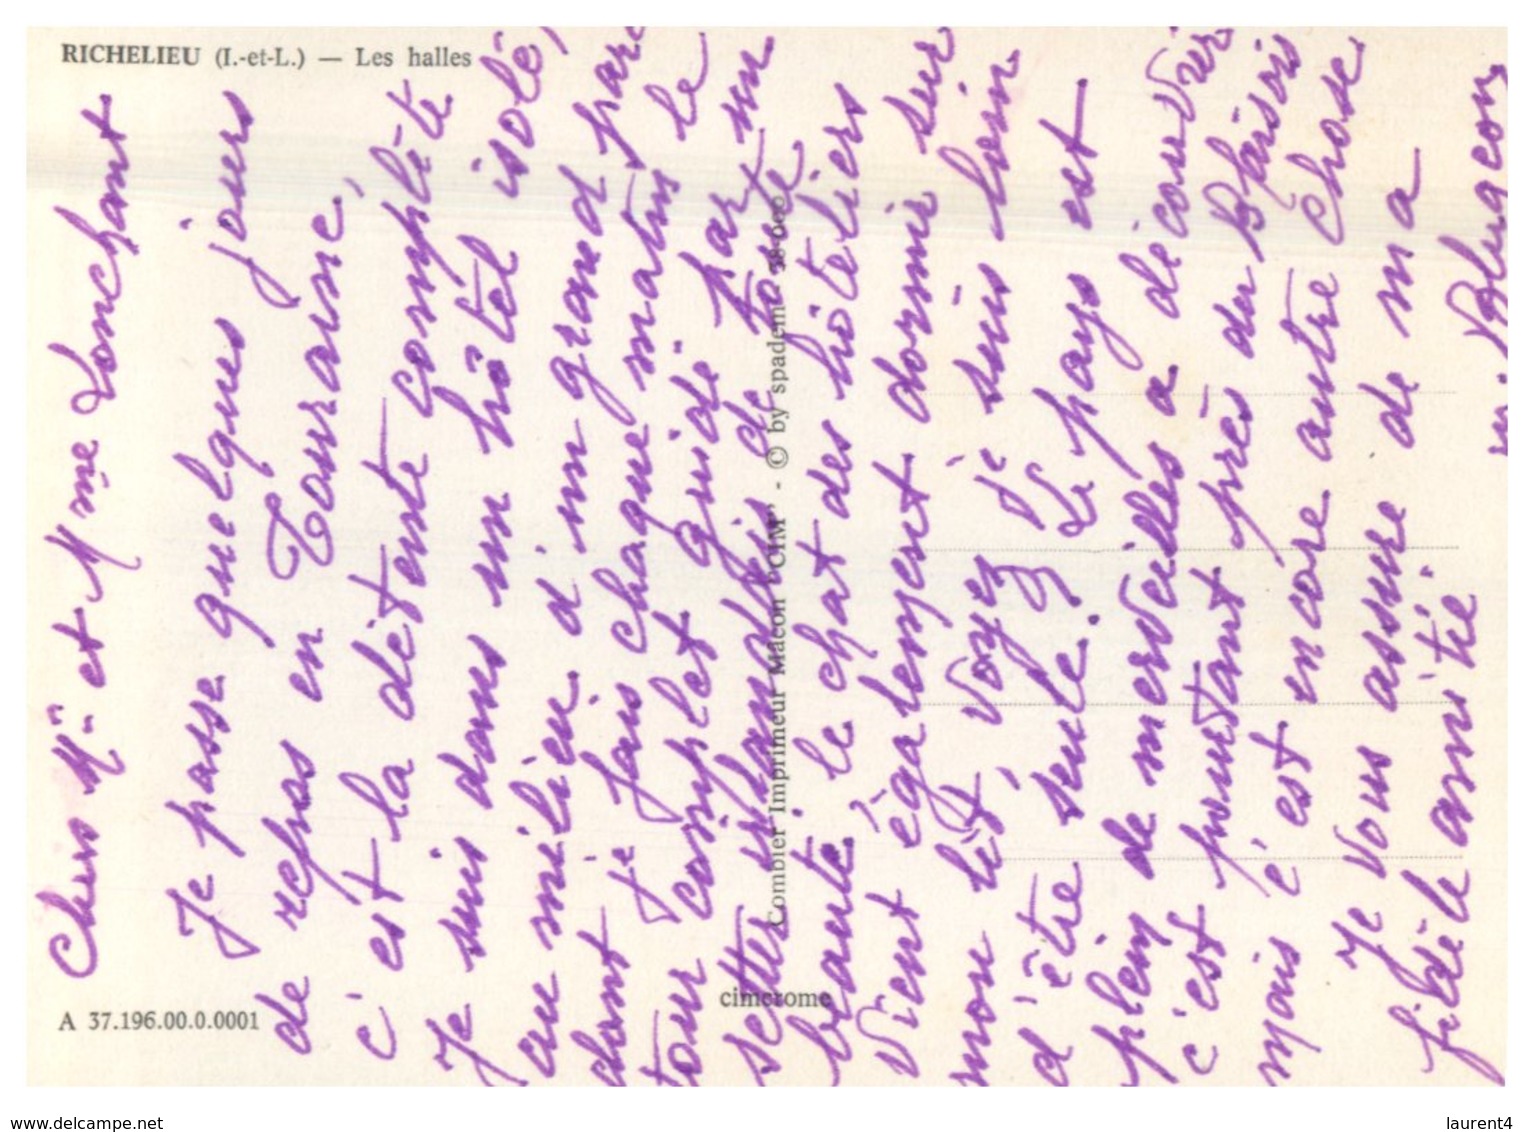 RICHELIEU (I.-et-L.) — Les halles
Chers Mr et Mme Lonchant
Je passe quelques jours
de repos en Touraine,
c'est la détente complète
Je suis dans un hôtel isolé,
au milieu d'un grand parc
dont je fais chaque matin le
tour complet guidé par un
setter irlandais de toute
beauté. le chat des hôteliers
vient également dormir sur
mon lit, voyez je suis loin
d'être seule. Le pays est
plein de merveilles à découvrir
c'est pourtant près du Blaisois
mais c'est encore autre chose
Je vous assure de ma
fidèle amitié.
M. Blugeon
Combier Imprimeur Macon "CIM" - © by spadem
cimcrome
A 37.196.00.0.0001
www.delcampe.net
laurent4